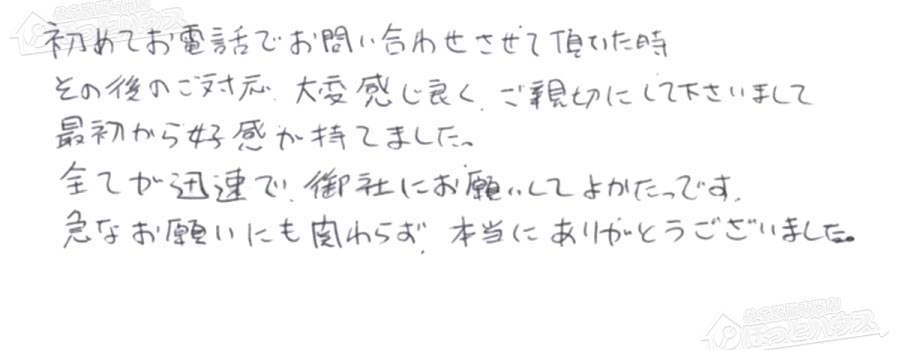 初めてお電話でお問い合わせさせて頂いた時
その後のご対応、大変感じ良く、ご親切にして下さいまして
最初から好感が持てました。
全てが迅速で、御社にお願いしてよかたっです。
急なお願いにも関わらず、本当にありがとうございました。
ほっとハウス